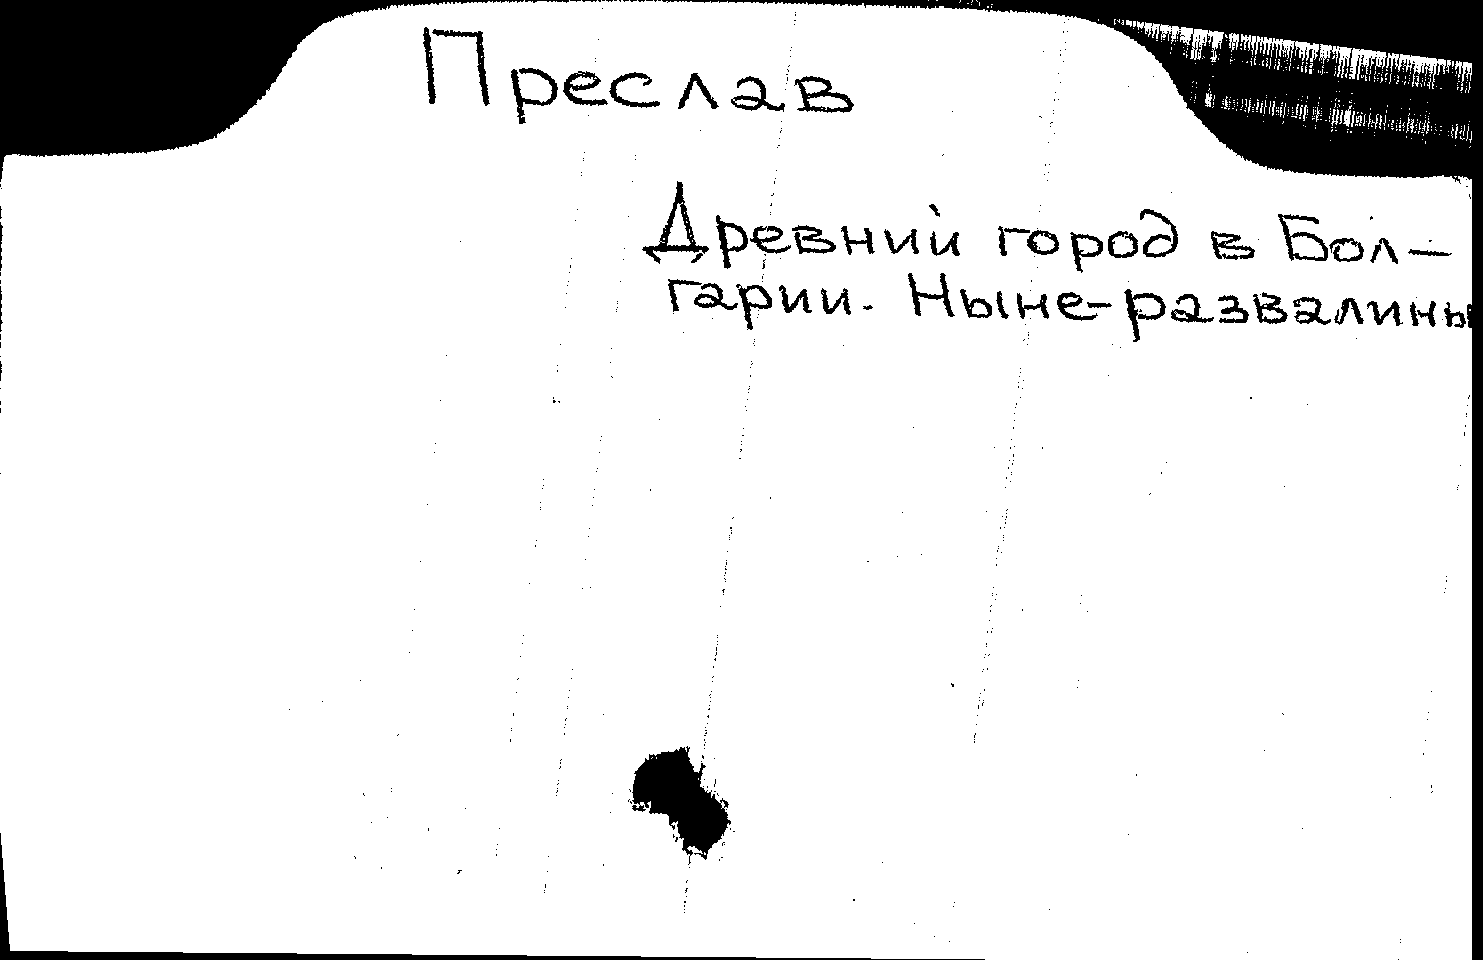 Преслав
Древний город в Бол-
гарии. Ныне-развалины